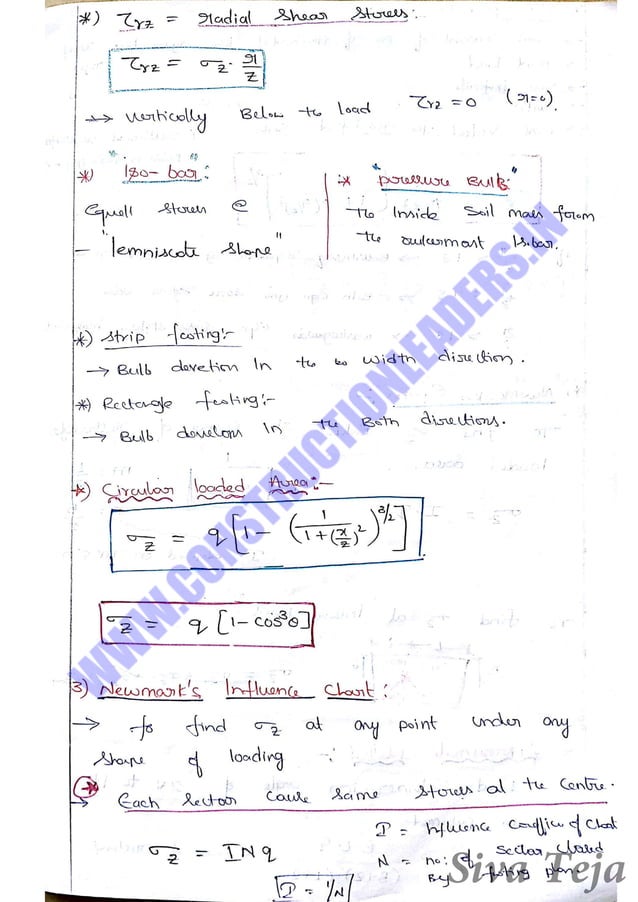 *) τrz = Radial Shear Stress:
τrz = σz · r/z
→ Vertically Below to load τrz = 0 (r=0).
*) "Iso-bar:
Equall Stress @
- "lemniscate shape"
* "pressure Bulb:"
the Inside Soil mass from
the outermost Isobar.
*) Strip footing:-
→ Bulb In to width direction.
*) Rectangle footing:-
→ Bulb develops In the Both directions.
*) Circular loaded Area:-
σz = q [1 - (1/(1+(r/z)²))^3/2]
σz = q [1 - cos³θ]
3) Newmark's Influence Chart:
→ To find σz at any point under any
shape of loading
* → Each sector cause same stress at the centre.
σz = INq
I = Influence of Chart
N = no: of Sector
By footing plan
I = 1/N
WWW.CONSTRUCTIONLEADERS.IN
Siva Teja